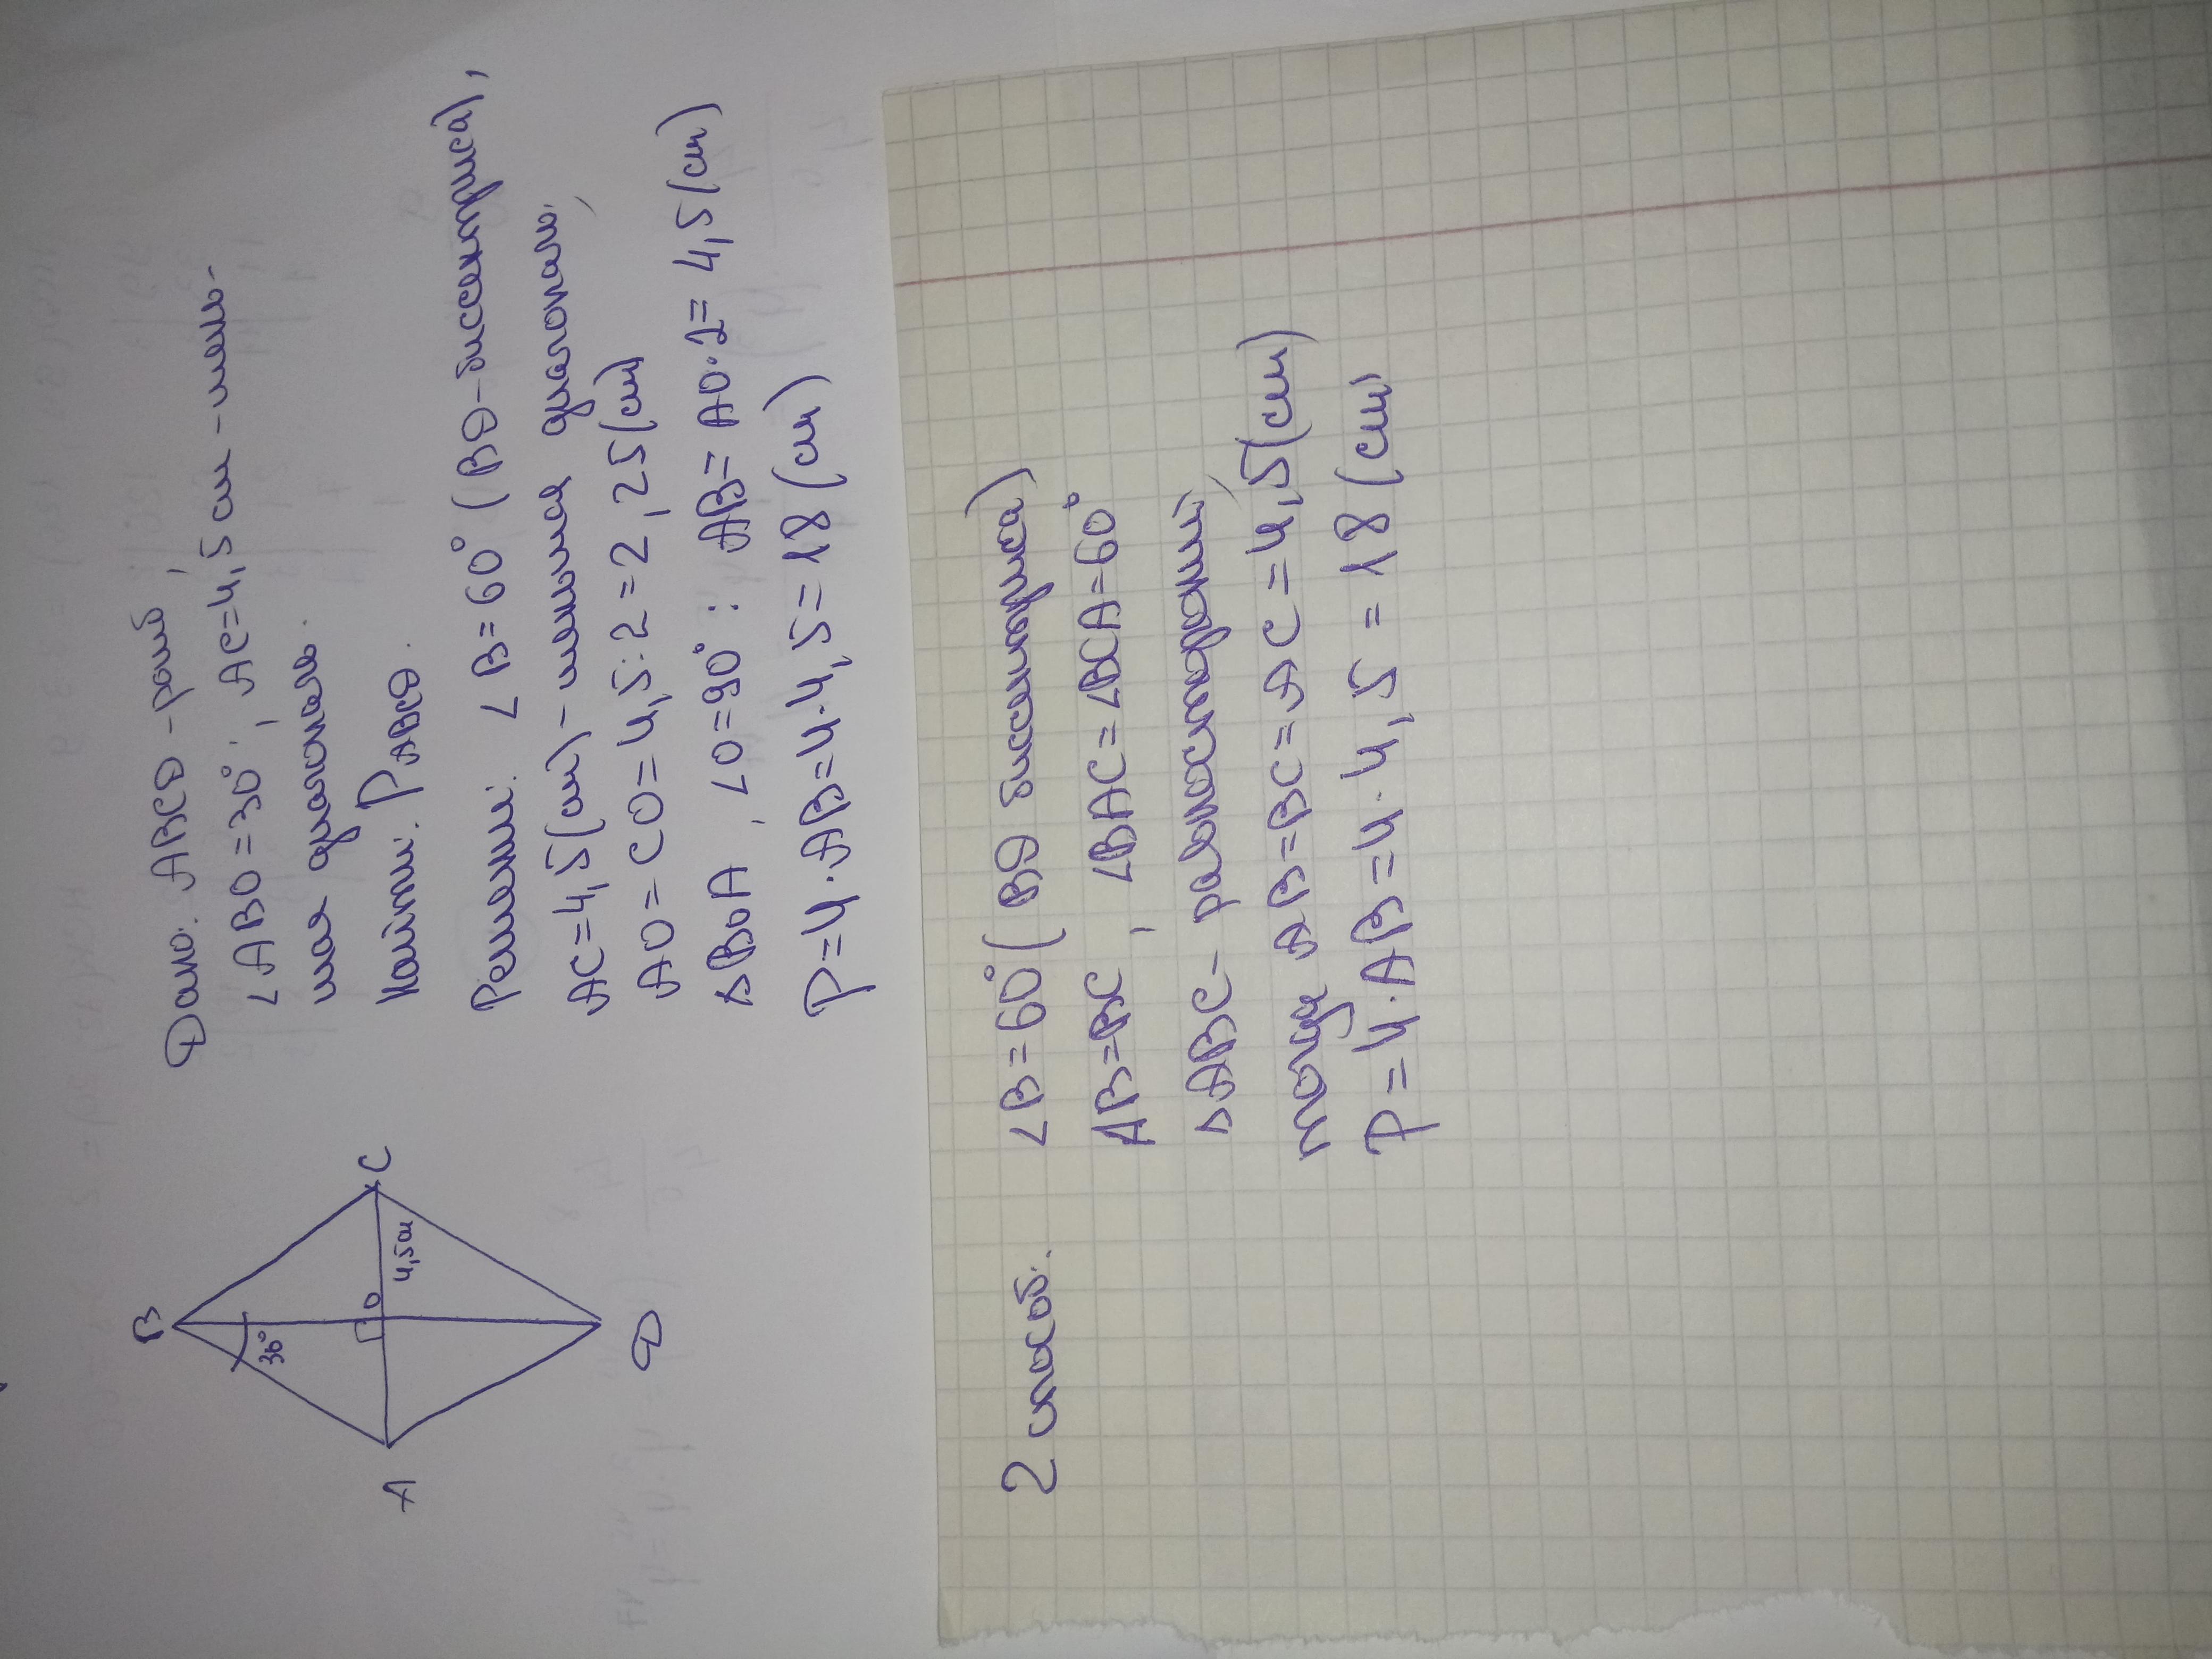 B
30°
A
O
4,5 см
C
D
Дано: ABCD - ромб,
∠ABO = 30°, AC = 4,5 см - мень-
шая диагональ.
Найти: P ABCD.
Решение: ∠B = 60° (BD - биссектриса),
AC = 4,5 (см) - меньшая диагональ,
AO = CO = 4,5 : 2 = 2,25 (см)
△BOA, ∠O = 90° : AB = AO · 2 = 4,5 (см)
P = 4 · AB = 4 · 4,5 = 18 (см)
2 способ: ∠B = 60° (BD биссектриса)
AB = BC, ∠BAC = ∠BCA = 60°
△ABC - равносторонний,
тогда AB = BC = AC = 4,5 (см)
P = 4 · AB = 4 · 4,5 = 18 (см)